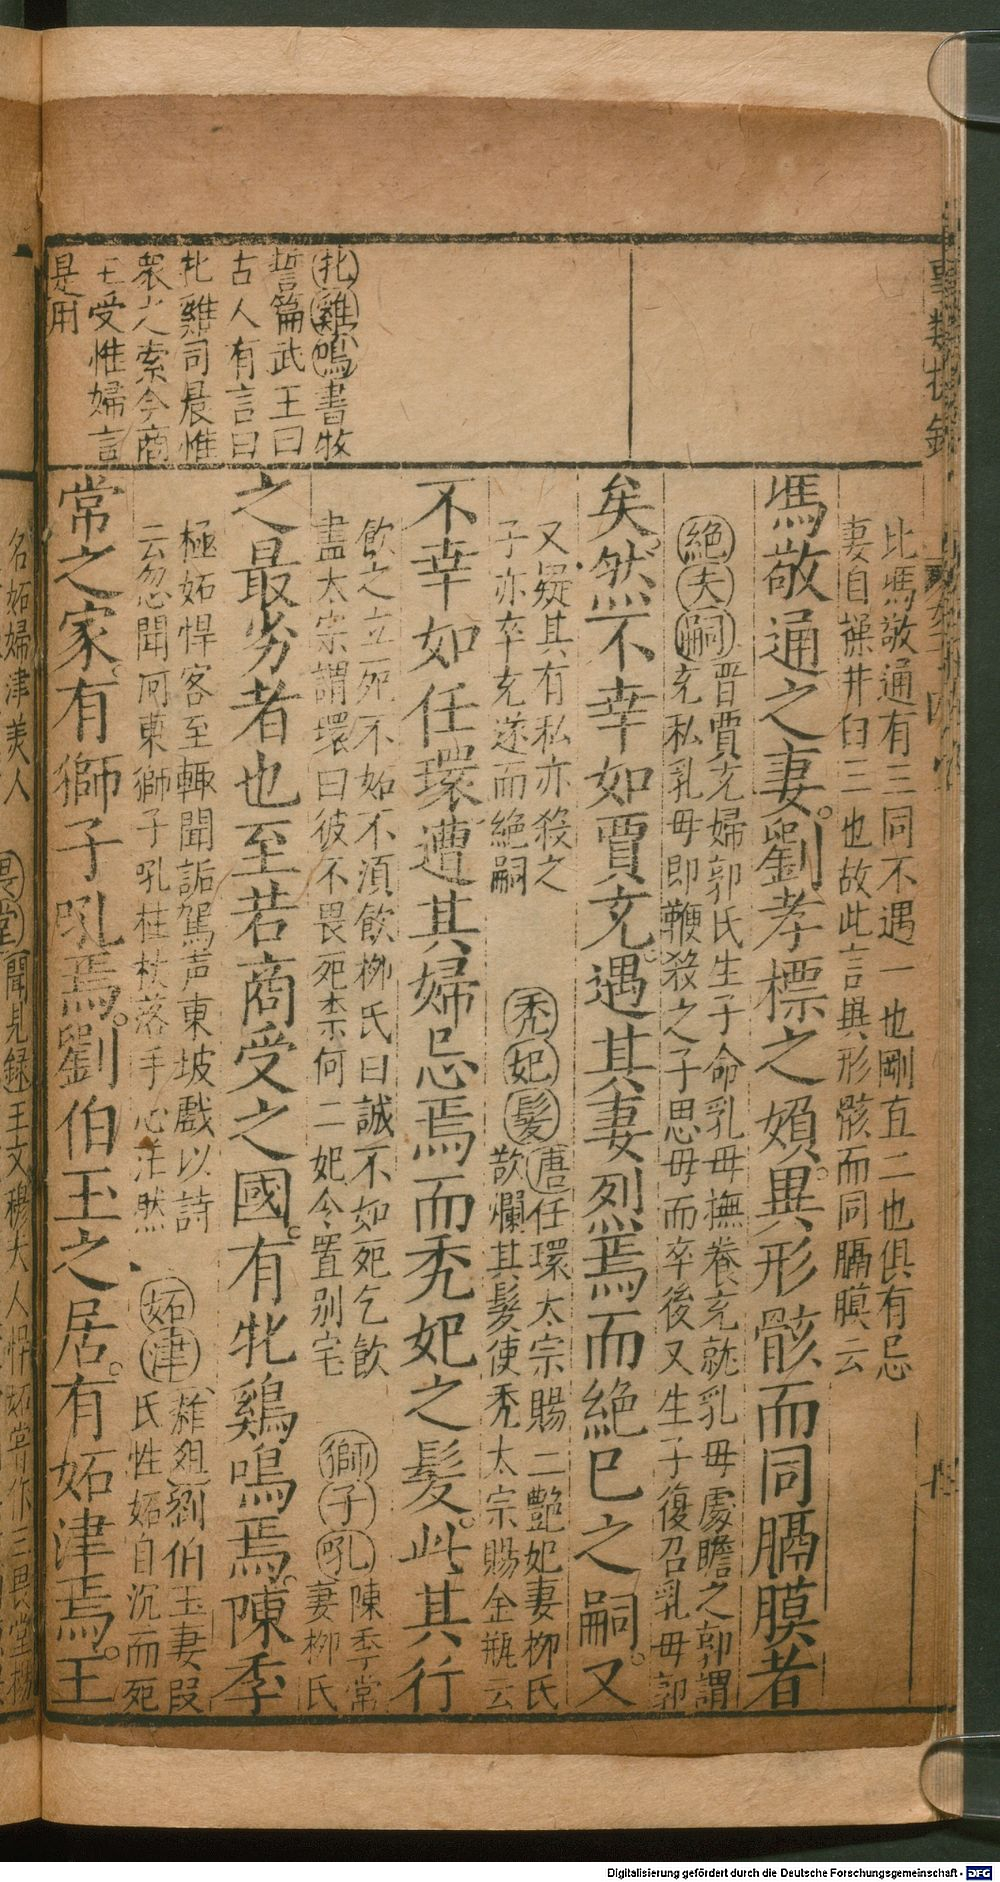 牝雞鳴書牧
誓篇武王曰
古人有言曰
牝雞司晨惟
衆之索今商
王受惟婦言
是用
比馮敬通有三同不遇一也剛直二也俱有忌
妻自操井臼三也故此言異形骸而同膈膜云
馮敬通之妻劉孝標之嬪異形骸而同膈膜者
絕夫嗣晋賈充婦郭氏生子命乳母撫養充就乳母處瞻之郭謂
充私乳母即鞭殺之子思母而卒後又生子復召乳母郭
矣然不幸如賈充遇其妻烈焉而絕巳之嗣又
又疑其有私亦殺之
子亦卒充遂而絕嗣
禿妃髮唐任環太宗賜二艷妃妻柳氏
歆爛其髮使禿太宗賜金瓶云
不幸如任環遭其婦忌焉而禿妃之髮此其行
飲之立死不妬不湏飲柳氏曰誠不如死乞飲
盡太宗謂環曰彼不畏死柰何二妃今置别宅
獅子吼陳季常
妻柳氏
之最劣者也至若商受之國有牝鷄鳴焉陳季
極妬悍客至輒聞詬駡声東坡戲以詩
云忽聞河東獅子吼柱杖落手心茫然
妬津雜俎劉伯玉妻段
氏性妬自沉而死
常之家有獅子吼焉劉伯玉之居有妬津焉王
名妬婦津美人
畏堂聞見録王文穆夫人悍妬嘗作三畏堂楊
Digitalisierung gefördert durch die Deutsche Forschungsgemeinschaft - DFG